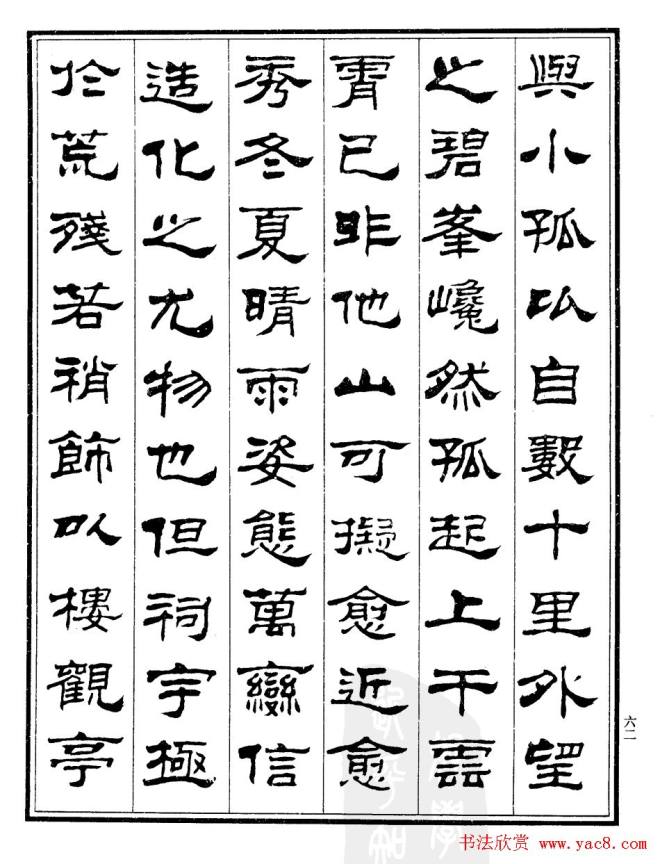 與小孤以自數十里外望
之碧峯巉然孤起上干雲
霄已非他山可擬愈近愈
秀冬夏晴雨姿態萬變信
造化之尤物也但祠宇極
於荒殘若稍飾以樓觀亭
六二
书法欣赏 www.yac8.com